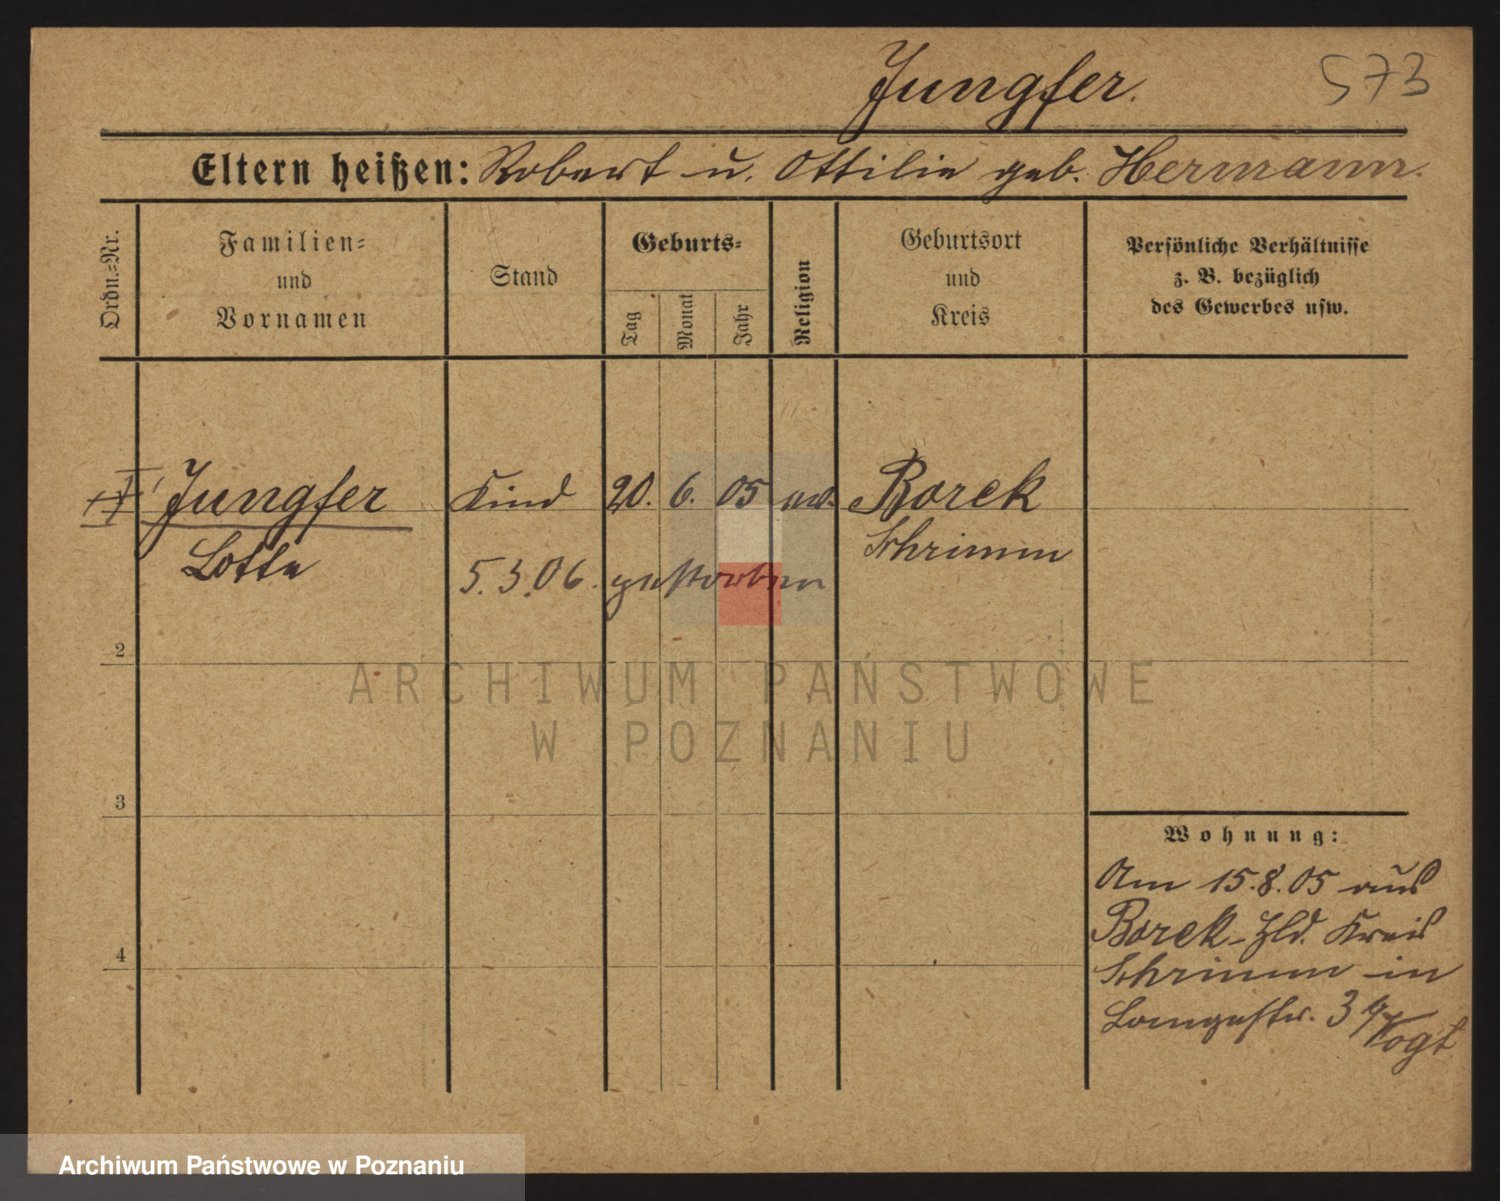 Jungfer.
573
Eltern heißen: Robert u. Ottilie geb. Hermann.
Ordn.=Nr.
Familien=
und
Vornamen
Stand
Geburts=
Tag
Monat
Jahr
Religion
Geburtsort
und
Kreis
Persönliche Verhältnisse
z. B. bezüglich
des Gewerbes usw.
Jungfer Kind 20. 6. 05 ev. Borek
Lotte Schrimm
5.3.06. gestorben
2
ARCHIWUM PAŃSTWOWE
W POZNANIU
3
Wohnung:
Am 15.8.05 aus
Borek-Hld. Kreis
Schrimm in
Langestr. 3
Vogt
4
Archiwum Państwowe w Poznaniu